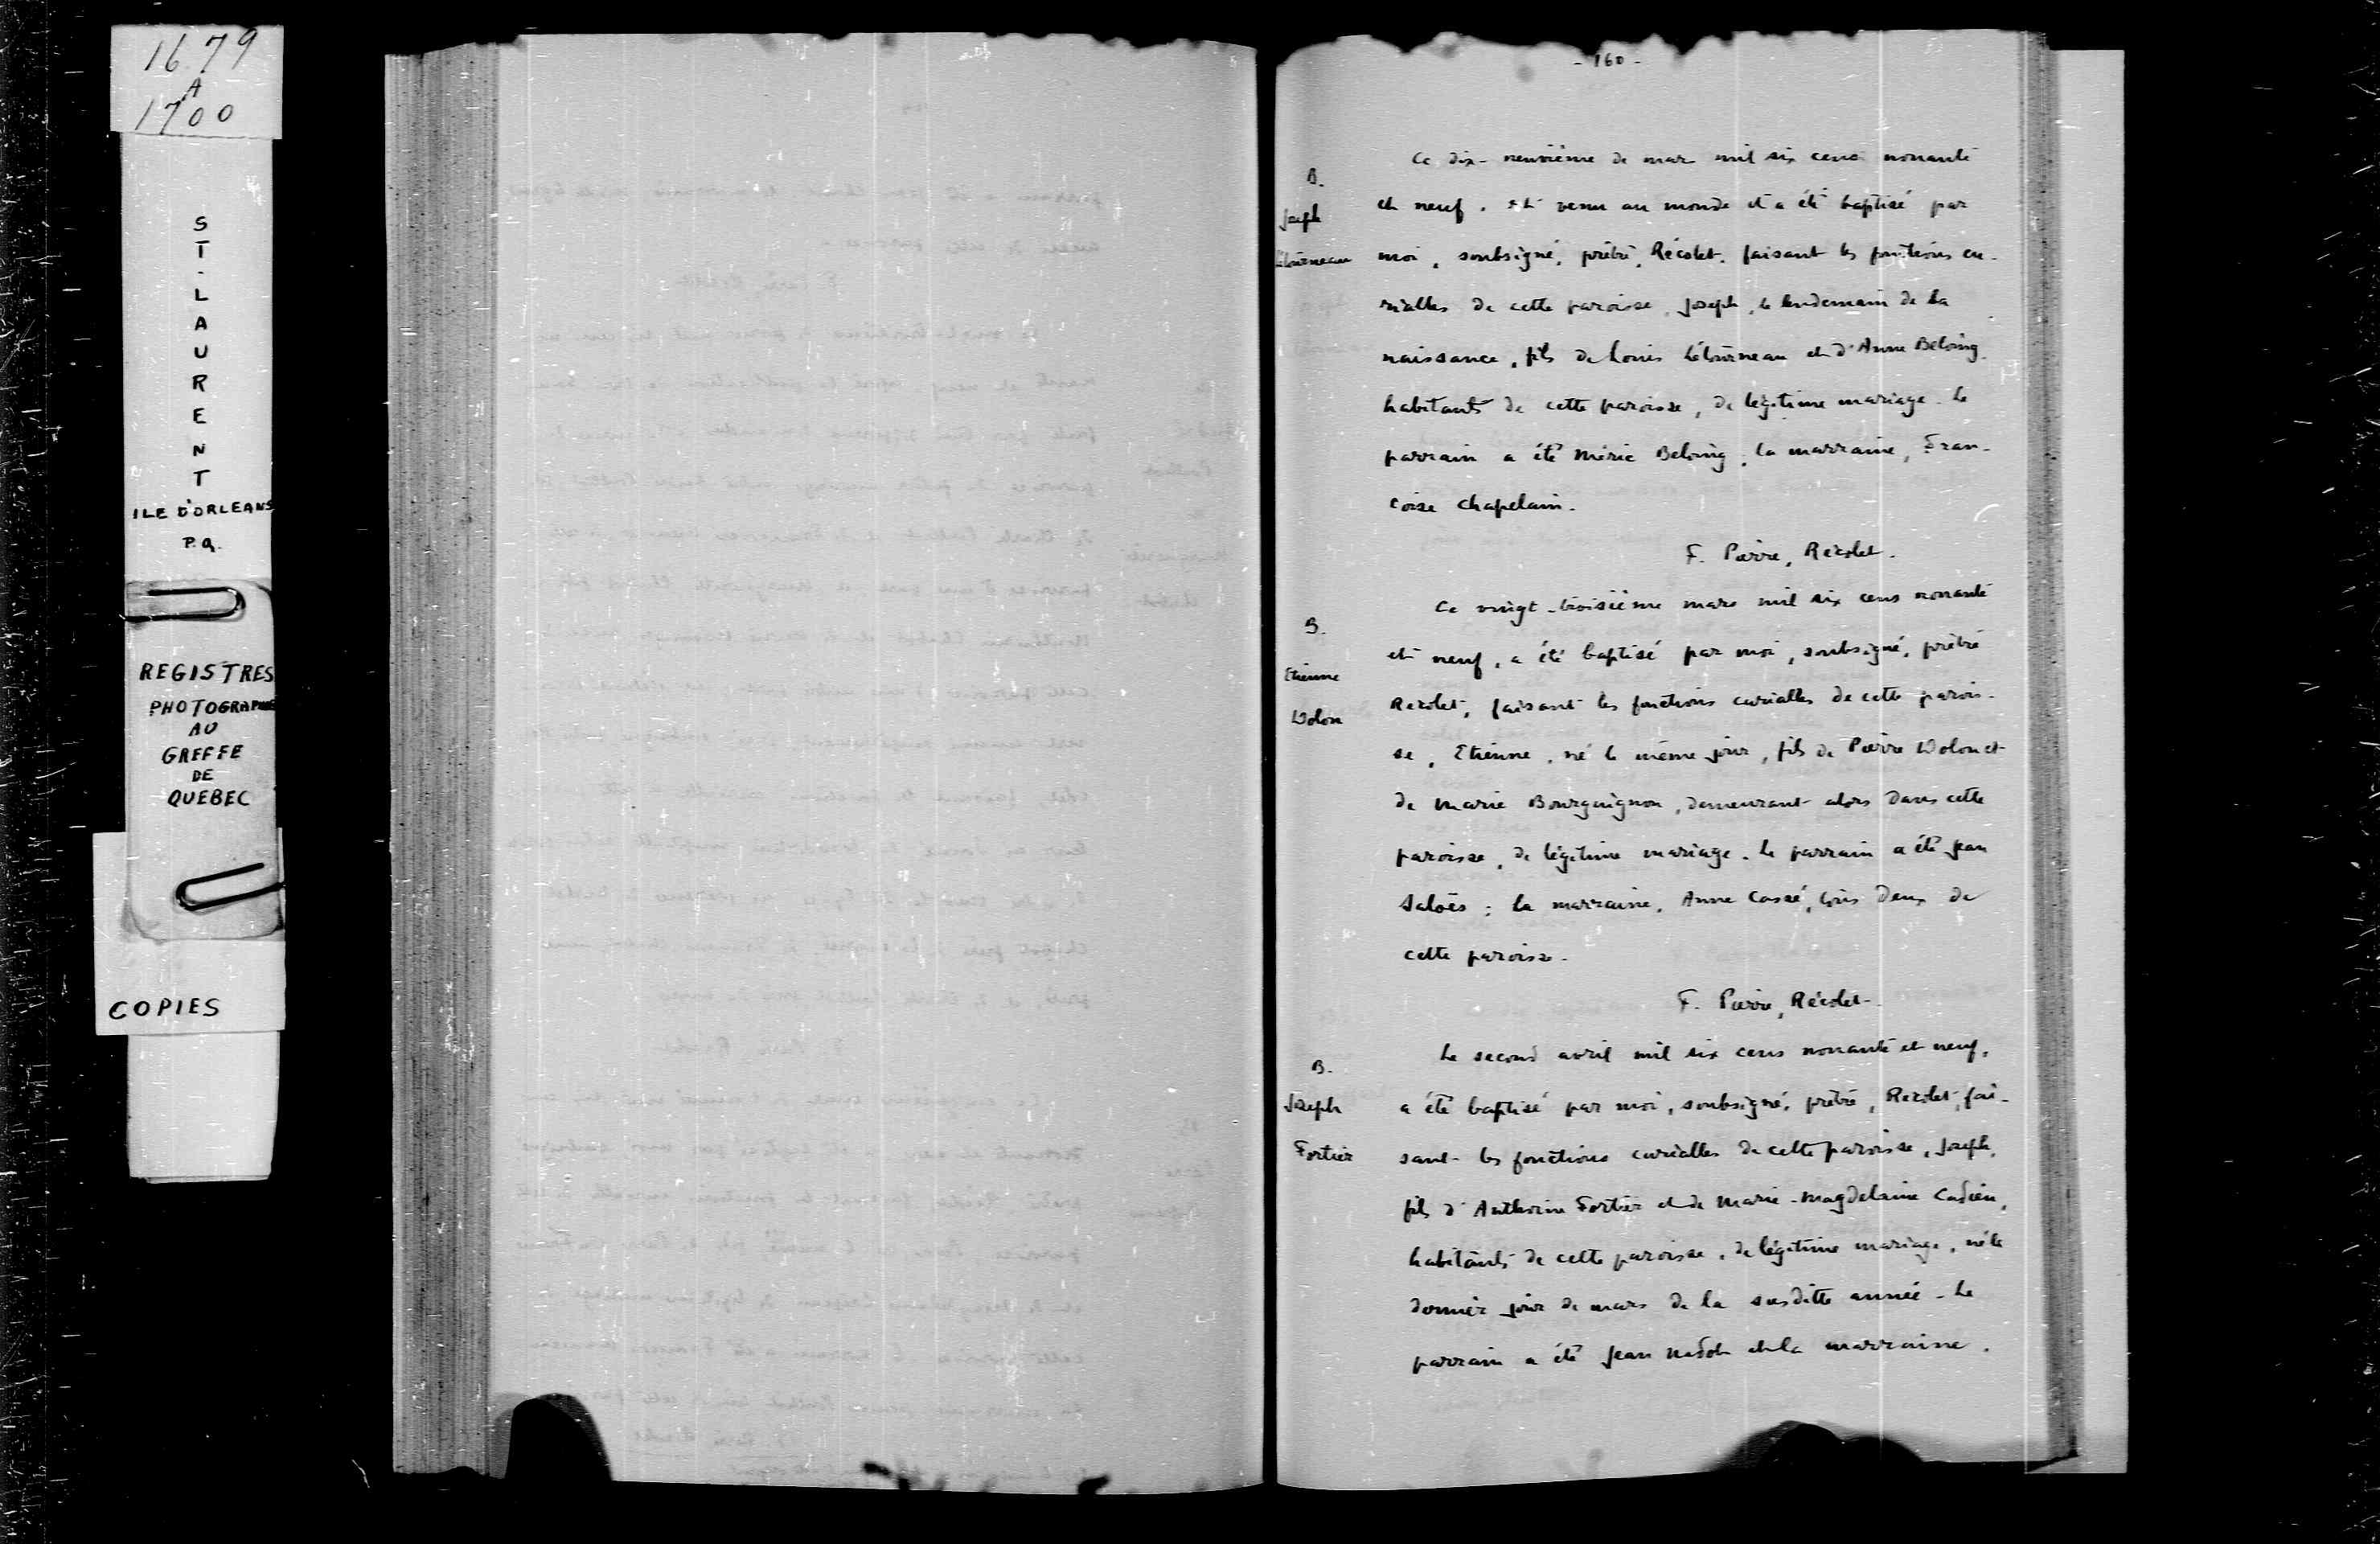 1679
A
1700
ST. LAURENT
ILE D'ORLEANS
P.Q.
REGISTRES
PHOTOGRAPHIE
AU
GREFFE
DE
QUEBEC
COPIES
- 160 -
B.
Joseph
Létourneau
Ce dix-neuvième de mars mil six cens nonante
et neuf, est venu au monde et a été baptisé par
moi, soubsigné, prêtre, Récolet, faisant les fonctions cu-
rialles de cette paroisse, Joseph, le lendemain de la
naissance, fils de Louis Létourneau et d'Anne Beloing,
habitants de cette paroisse, de légitime mariage. Le
parrain a été Méric Beloing, la marraine, Fran-
coise Chapelain.
F. Pierre, Récolet.
B.
Etienne
Dolon
Ce vingt-troisième mars mil six cens nonante
et neuf, a été baptisé par moi, soubsigné, prêtre
Récolet, faisant les fonctions curialles de cette parois-
se, Etienne, né le même jour, fils de Pierre Dolon et
de Marie Bourguignon, demeurant alors dans cette
paroisse, de légitime mariage. Le parrain a été Jean
Saloës; la marraine, Anne Cassé, tous deux de
cette paroisse.
F. Pierre, Récolet.
B.
Joseph
Fortier
Le second avril mil six cens nonante et neuf,
a été baptisé par moi, soubsigné, prêtre, Récolet, fai-
sant les fonctions curialles de cette paroisse, Joseph,
fils d'Anthoine Fortier et de Marie-Magdelaine Cadieu,
habitants de cette paroisse, de légitime mariage, né le
dernier jour de mars de la susditte année. Le
parrain a été Jean Nadot et la marraine,